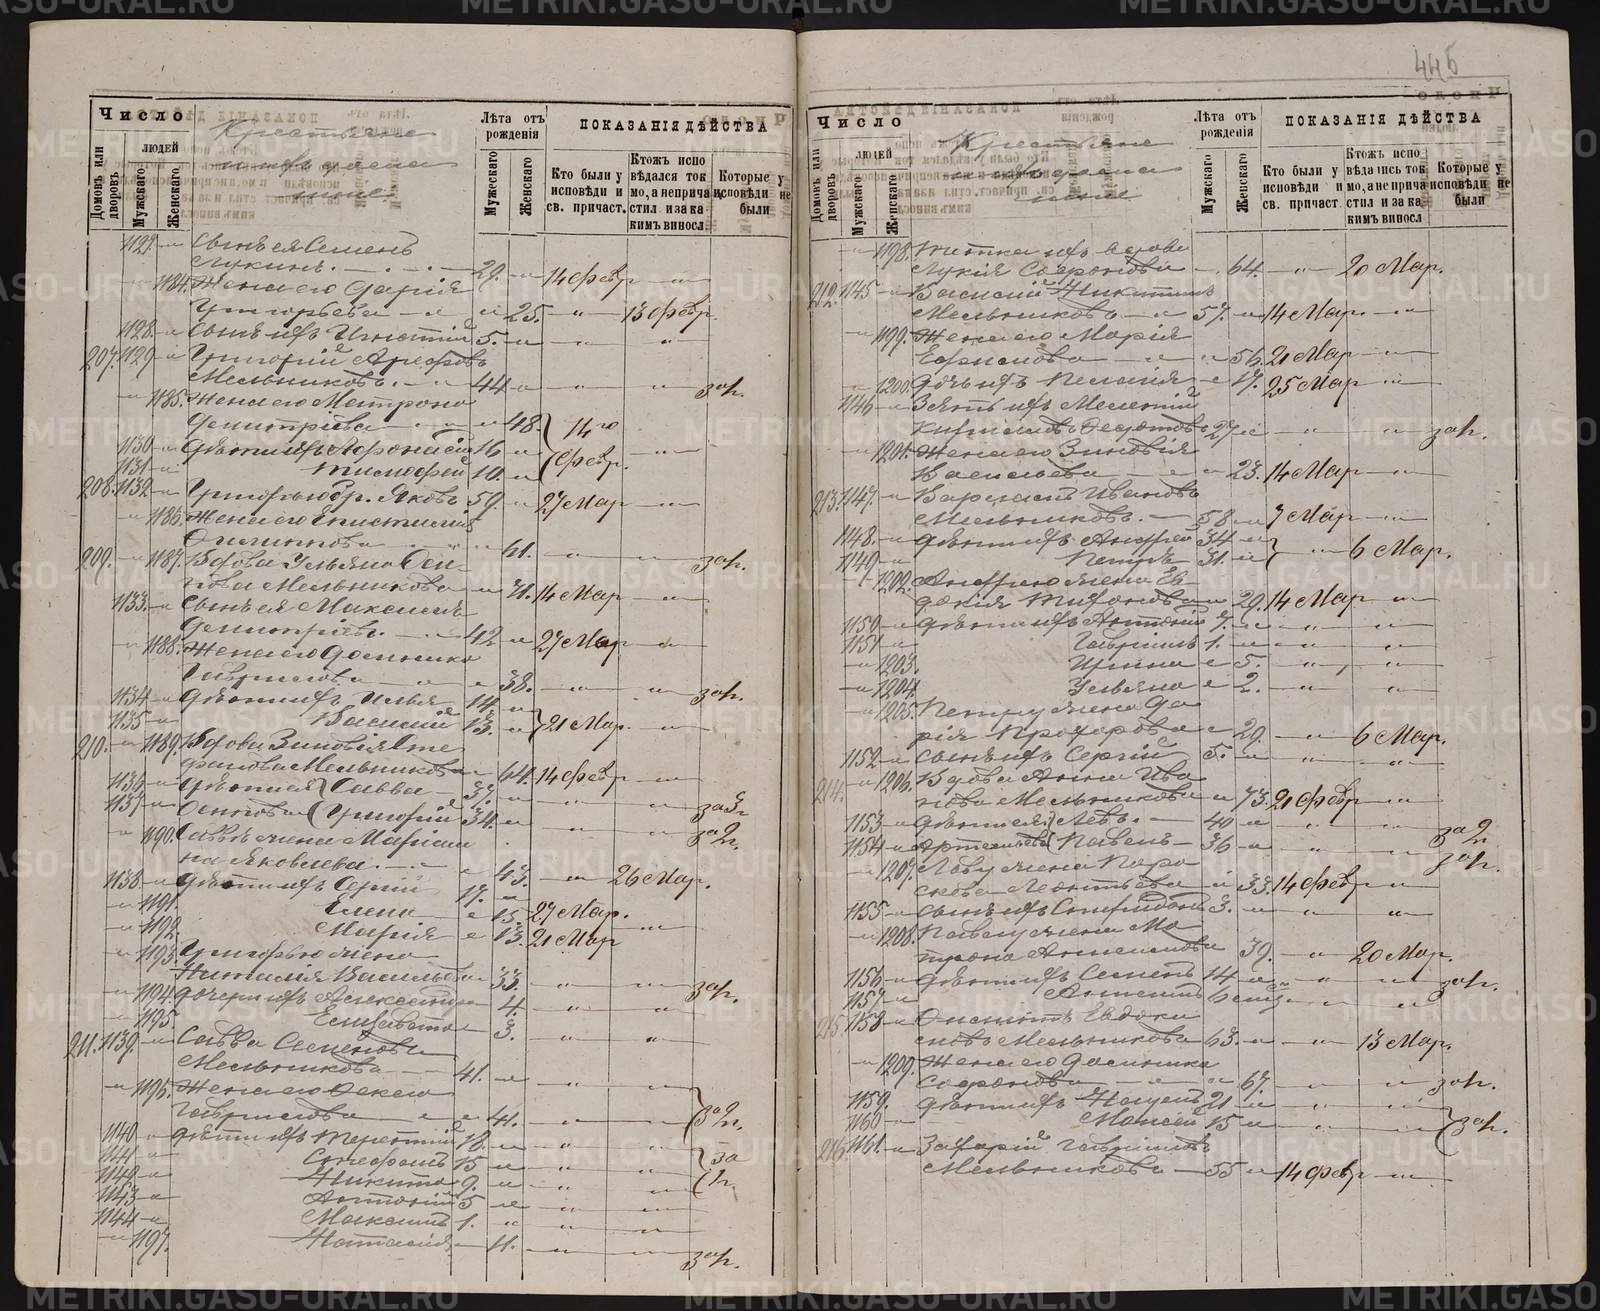 445
Число
людей
Домовъ или дворовъ
Мужскаго
Женскаго
Крестьяне
и ихъ домашнiе
Лѣта отъ рожденія
Мужескаго
Женскаго
ПОКАЗАНІЯ ДѢЙСТВА
Кто были у исповѣди и св. причаст.
Ктожъ испо вѣдался ток мо, а неприча стил и за ка кимъ винослов
Которые у исповѣди не были
1127 Сынъ ея Семенъ
Лукинъ 29. 14 февр
1184. Жена его Дарія
Григорьева 25. 13 февр.
1128 Сынъ ихъ Игнатій 5.
207. 1129 Григорій Арефовъ
Мельниковъ. 44 за 1г.
1185. Жена его Матрона
Димитріева 48. 14го
1130 Дѣти ихъ Афонасій 16 февр.
1131 Тимофей 10.
208. 1132 Григорью бр. Яковъ 59. 27 Мар
1186. Жена его Епистимія
Филиппова 61. за 1г.
209. 1187. Вдова Ульяна Оси-
пова Мельникова 71. 14 Мар
1133 Сынъ ея Максимъ
Димитріевъ. 42 27 Мар
1188. Жена его Домника
Гаврилова 38. за 1г.
1134 Дѣти ихъ Илья 14.
1135 Василій 13. 21 Мар.
210. 1189. Вдова Зиновія Сте
фанова Мельникова 64. 14 февр
1136 Дѣти ея Савва 37. за 3г
1137 Осиповы Григорій 34. за 2г.
1190. Саввѣ жена Маріам
на Яковлева. 43. 26 Мар.
1138 Дѣти ихъ Сергій 17.
1191. Елена 15. 27 Мар.
1192. Марія 13. 21 Мар
1193. Григорью жена
Наталія Васильева 33. за 1г.
1194. Дочери ихъ Александра 4.
1195. Елизавета 3.
211. 1139. Савва Семеновъ
Мельниковъ 41.
1196. Жена его Фекла
Гаврилова 41. за 2г.
1140 Дѣти ихъ Терентій 18
1141 Стефанъ 15 за
1142 Никита 9. 1г.
1143 Антоній 5
1144 Максимъ 1.
1197. Наталія 11. за 1г.
Число
людей
Домовъ или дворовъ
Мужскаго
Женскаго
Крестьяне
и ихъ домашнiе
Лѣта отъ рожденія
Мужскаго
Женскаго
ПОКАЗАНІЯ ДѢЙСТВА
Кто были у исповѣди и св. причаст.
Ктожъ испо вѣдались ток мо, а не прича стил и за ка кимъ винослов
Которые у исповѣди не были
1198. Тетка ихъ вдова
Лукія Софронова 64. 20 Мар.
212. 1145 Василій Никитинъ
Мельниковъ 57. 14 Мар.
1199. Жена его Марія
Ефимова 56. 21 Мар
1200. Дочь ихъ Пелагія 17. 25 Мар
1146 Зять ихъ Мелетій
Кириловъ Федотовъ 27 за 1г.
1201. Жена его Зиновія
Васильева 23. 14 Мар
213. 1147. Варлаамъ Ивановъ
Мельниковъ. 58 7 Мар
1148. Дѣти ихъ Андрей 34
1149 Петръ 31. 6 Мар.
1202. Андрею жена Ев-
докія Тихонова 29. 14 Мар
1150 Дѣти ихъ Антоній 7.
1151 Гавріилъ 1.
1203. Ирина 5.
1204. Ульяна 2.
1205. Петру жена Да
рія Прохорова 29. 6 Мар.
1152 Сынъ ихъ Сергій 5.
214. 1206. Вдова Анна Ива
нова Мельникова 73. 21 февр
1153 Дѣти ея Левъ. 40 за 2г
1154 Артемьевы Павелъ 36 за 1г.
1207. Льву жена Пара
скева Леонтьева 33. 14 февр
1155 Сынъ ихъ Спиридонъ 3.
1208. Павлу жена Ма
трона 39. 20 Мар.
1156 Дѣти ихъ Семенъ 14 за 1г.
1157. 6
215 1158 Филиппъ Евдоки
мовъ Мельниковъ 63. 13 Мар.
1209. Жена его Домника
Софронова 67. за 1г.
1159. Дѣти ихъ Наумъ 21
1160 Моисей 15 за 1г.
216 1161. Захарій Гавріиловъ
Мельниковъ 55 14 февр
METRIKI.GASO-URAL.RU